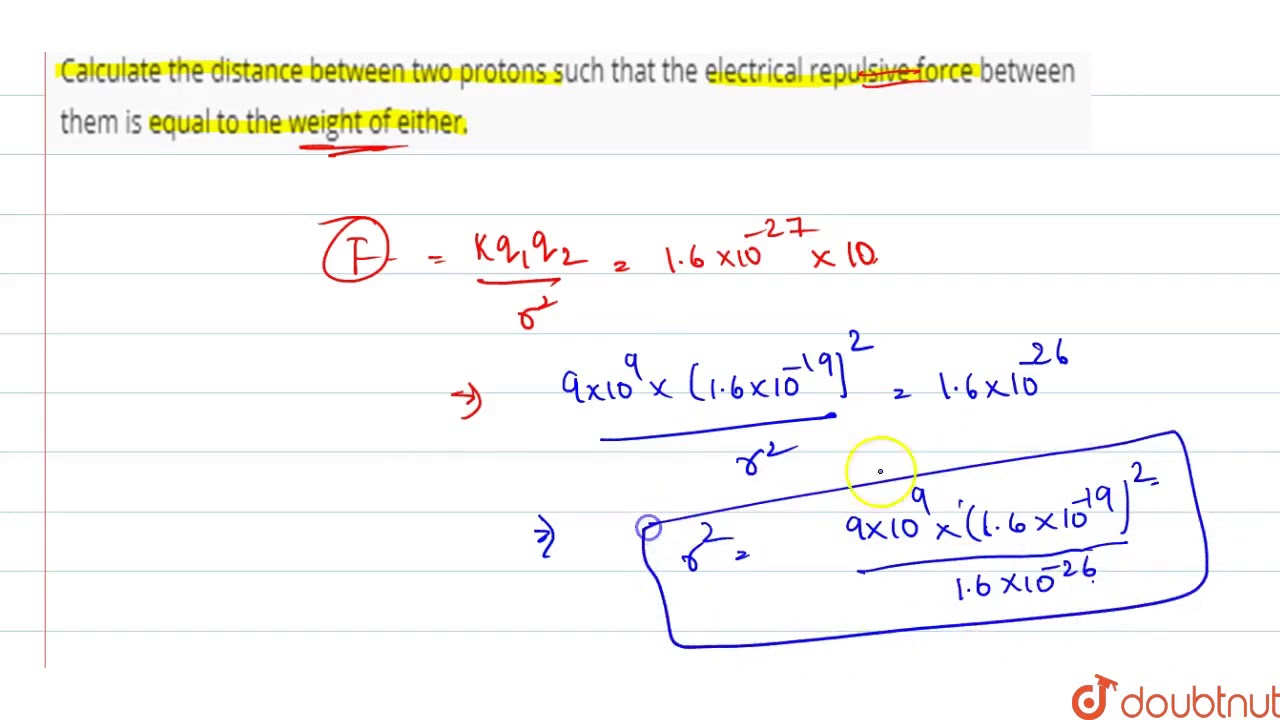 Calculate the distance between two protons such that the electrical repulsive force between
them is equal to the weight of either.
F = Kq₁q₂/r² = 1.6×10⁻²⁷ × 10
⇒ 9×10⁹×(1.6×10⁻¹⁹)²/r² = 1.6×10⁻²⁶
⇒ r² = 9×10⁹×(1.6×10⁻¹⁹)²/1.6×10⁻²⁶
doubtnut